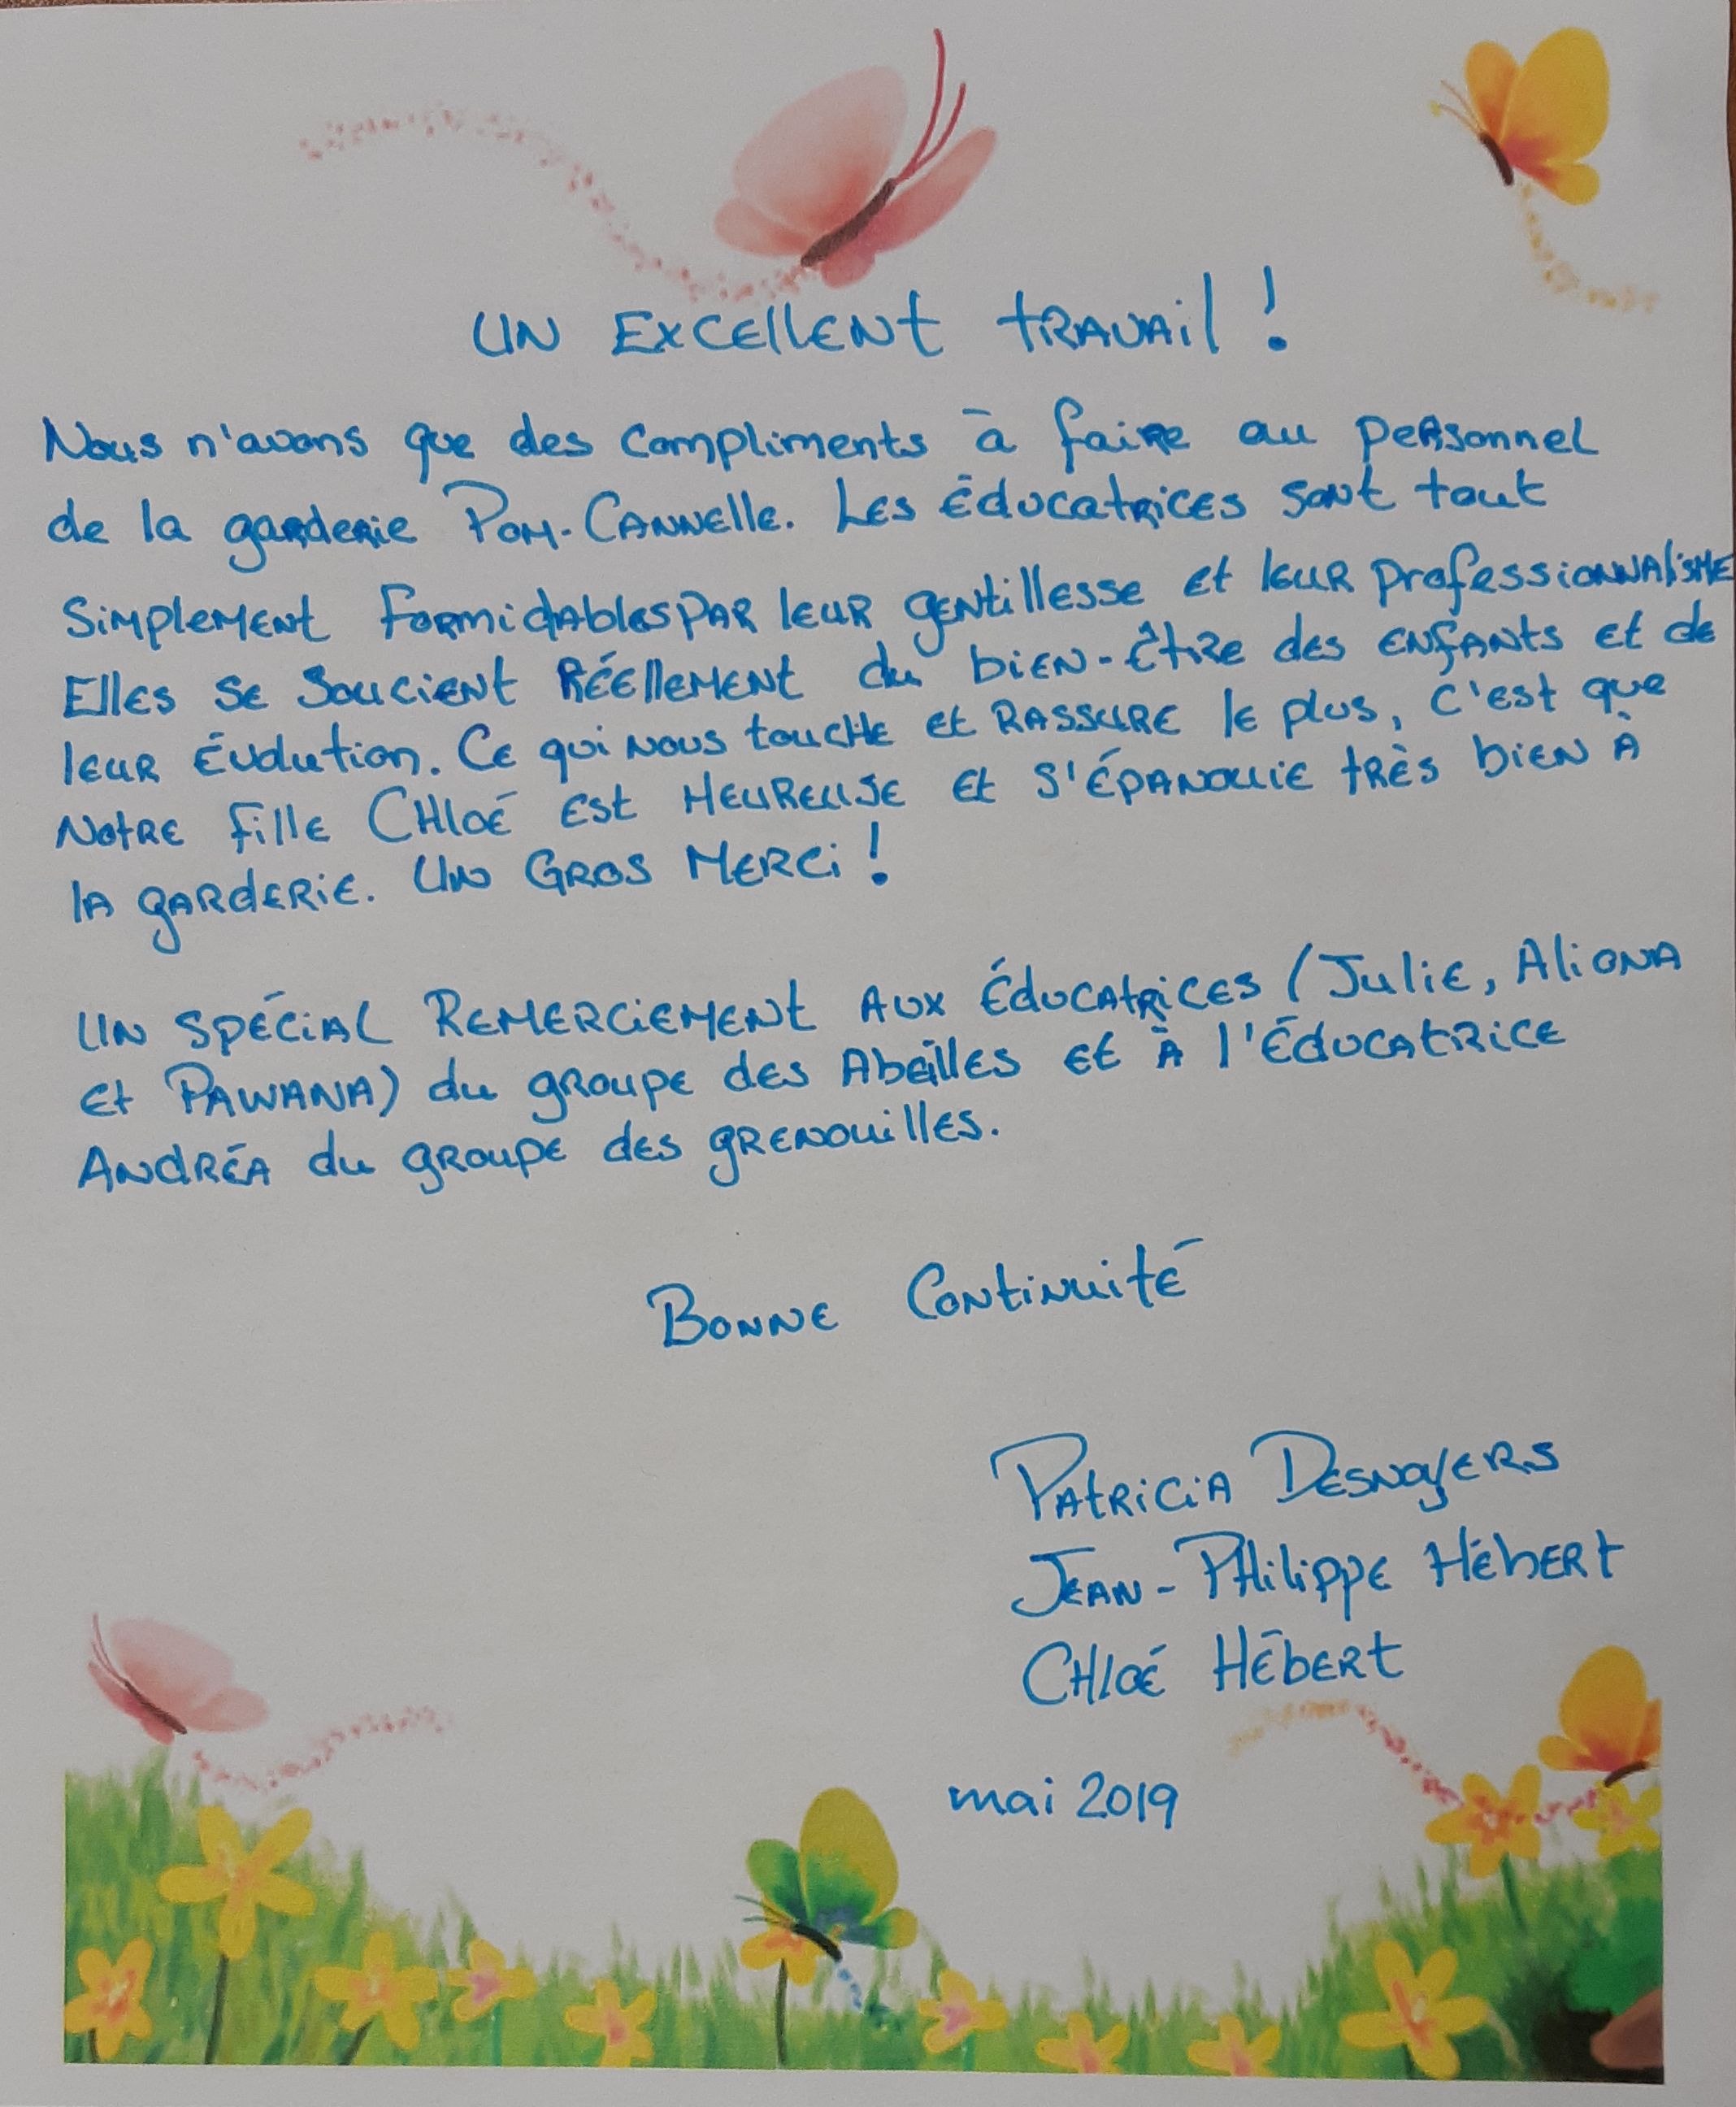 Un excellent travail !
Nous n'avons que des compliments à faire au personnel
de la garderie Pom-Cannelle. Les éducatrices sont tout
simplement formidables par leur gentillesse et leur professionnalisme
Elles se soucient réellement du bien-être des enfants et de
leur évolution. Ce qui nous touche et rassure le plus, c'est que
notre fille Chloé est heureuse et s'épanouie très bien à
la garderie. Un gros merci !
Un spécial remerciement aux éducatrices (Julie, Aliona
et Pawana) du groupe des Abeilles et à l'éducatrice
Andréa du groupe des grenouilles.
Bonne Continuité
Patricia Desnoyers
Jean-Philippe Hébert
Chloé Hébert
mai 2019